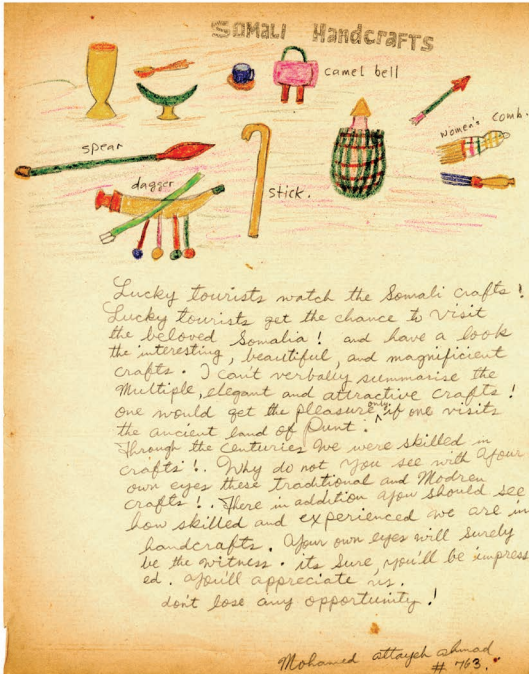 SOMALI Handcrafts
camel bell
women's comb.
spear
dagger
stick.
Lucky tourists watch the Somali crafts!
Lucky tourists get the chance to visit
the beloved Somalia! and have a look
the interesting, beautiful, and magnificient
crafts. I can't verbally summarise the
Multiple, elegant and attractive crafts!
one would get the pleasure only if one visits
the ancient land of Punt.
Through the Centuries We were skilled in
crafts!. Why do not you see with your
own eyes these traditional and Modren
crafts!. There in addition you should see
how skilled and experienced we are in
handcrafts. Your own eyes will surely
be the witness. its sure, you'll be impress
ed. you'll appreciate us.
don't lose any opportunity!
Mohamed attayeh ahmad
# 763.